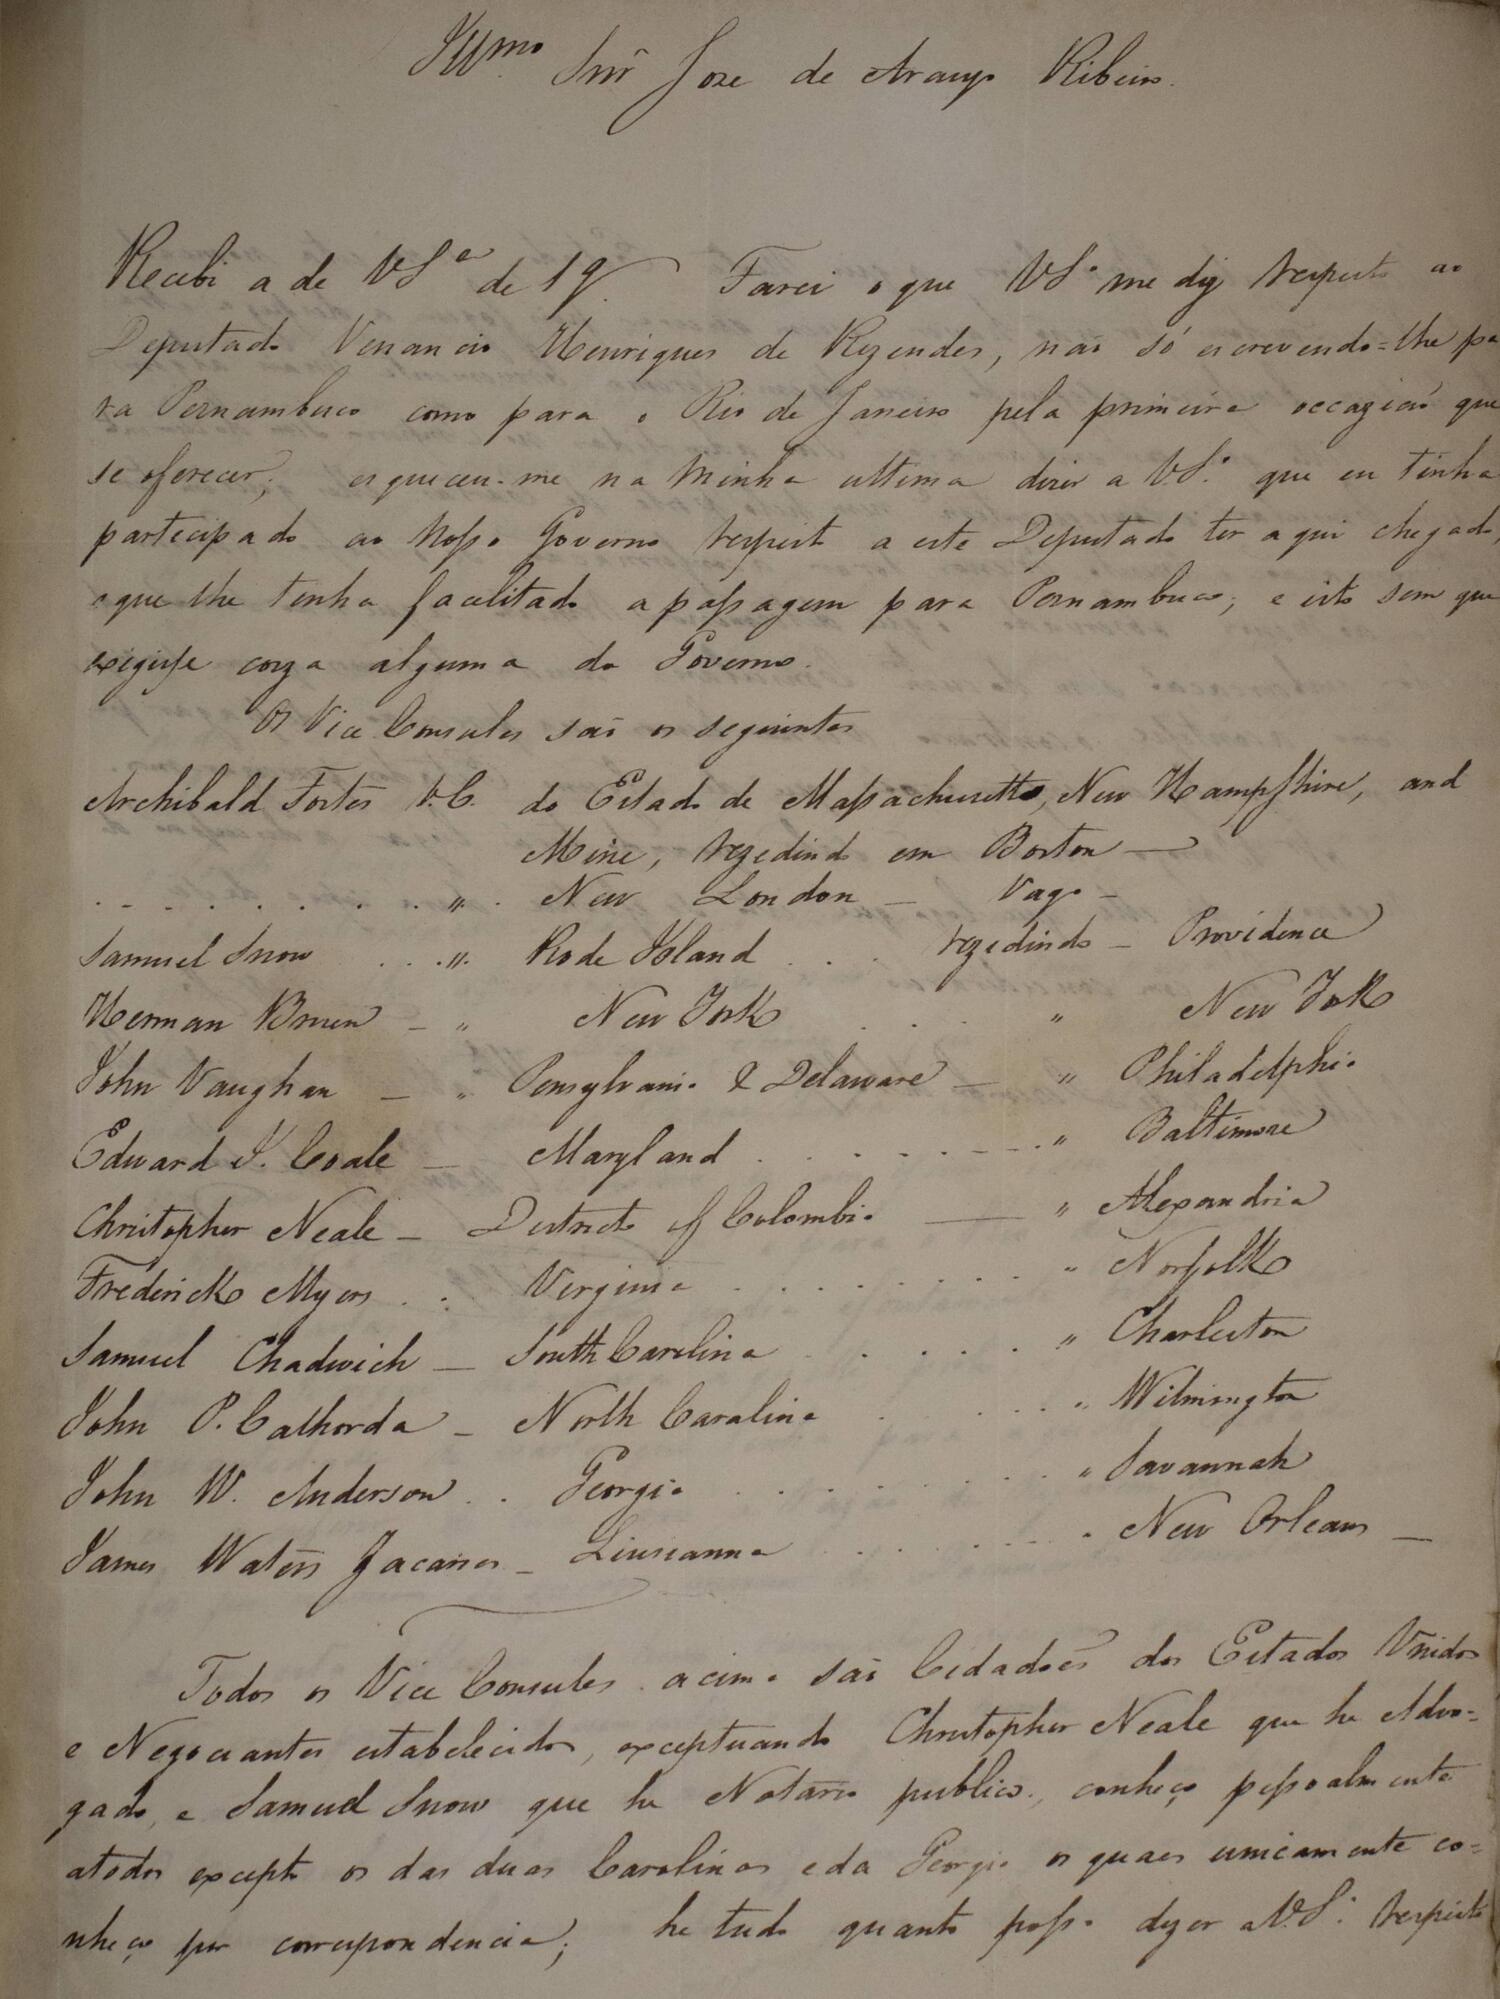 Illmo Snr Joze de Araujo Ribeiro.
Recebi a de VSª de 19. Farei o que VSª me diz respeito ao
Deputado Venancio Henriques de Rezendes, não só escrevendo=lhe pa
ra Pernambuco como para o Rio de Janeiro pela primeira occazião que
se oferecer; esqueceu-me na minha ultima dizer a V.Sª. que eu tinha
participado ao Nosso Governo respeito a este Deputado ter aqui chegado,
e que lhe tinha facelitado a passagem para Pernambuco; e isto sem que
exigisse coyza alguma do Governo.
Os Vice Consules são os seguintes
Archibald Foster V.C. do Estado de Massachusetts, New Hampshire, and
Meine, rezedindo em Boston —
. . . . . . . . . " . New London — Vago —
Samuel Snow . . . " . Rode Island . . . rezedindo — Providence
Herman Bruen — " New York . . . " New York
John Vaughan — " Pensylvania & Delaware — " Philadelphia
Edward J. Coale — Maryland . . . . . . — . " Baltimore
Christopher Neale — Districto of Colombia — " Alexandria
Frederick Myers . . Verginia . . . . . . . " Norfolk
Samuel Chadwich — South Carolina . . . . . " Charleston
John P. Calhorda — North Carolina . . . . . " Wilmington
John W. Anderson . . Georgia . . . . . . . " Savannah
James Waters — Liuseanna . . . . . . " New Orleans —
Todos os Vice Consules acima são Cidadoēs dos Estados Unidos
e Negociantes estabelecidos, exceptuando Christopher Neale que he Advo=
gado, e Samuel Snow que he Notario publico, conheço pessoalmente
a todos excepto os das duas Carolinas e da Georgia os quaes unicamente co=
nheço por correspondencia; he tudo quanto posso dizer a V.Sª. respeito